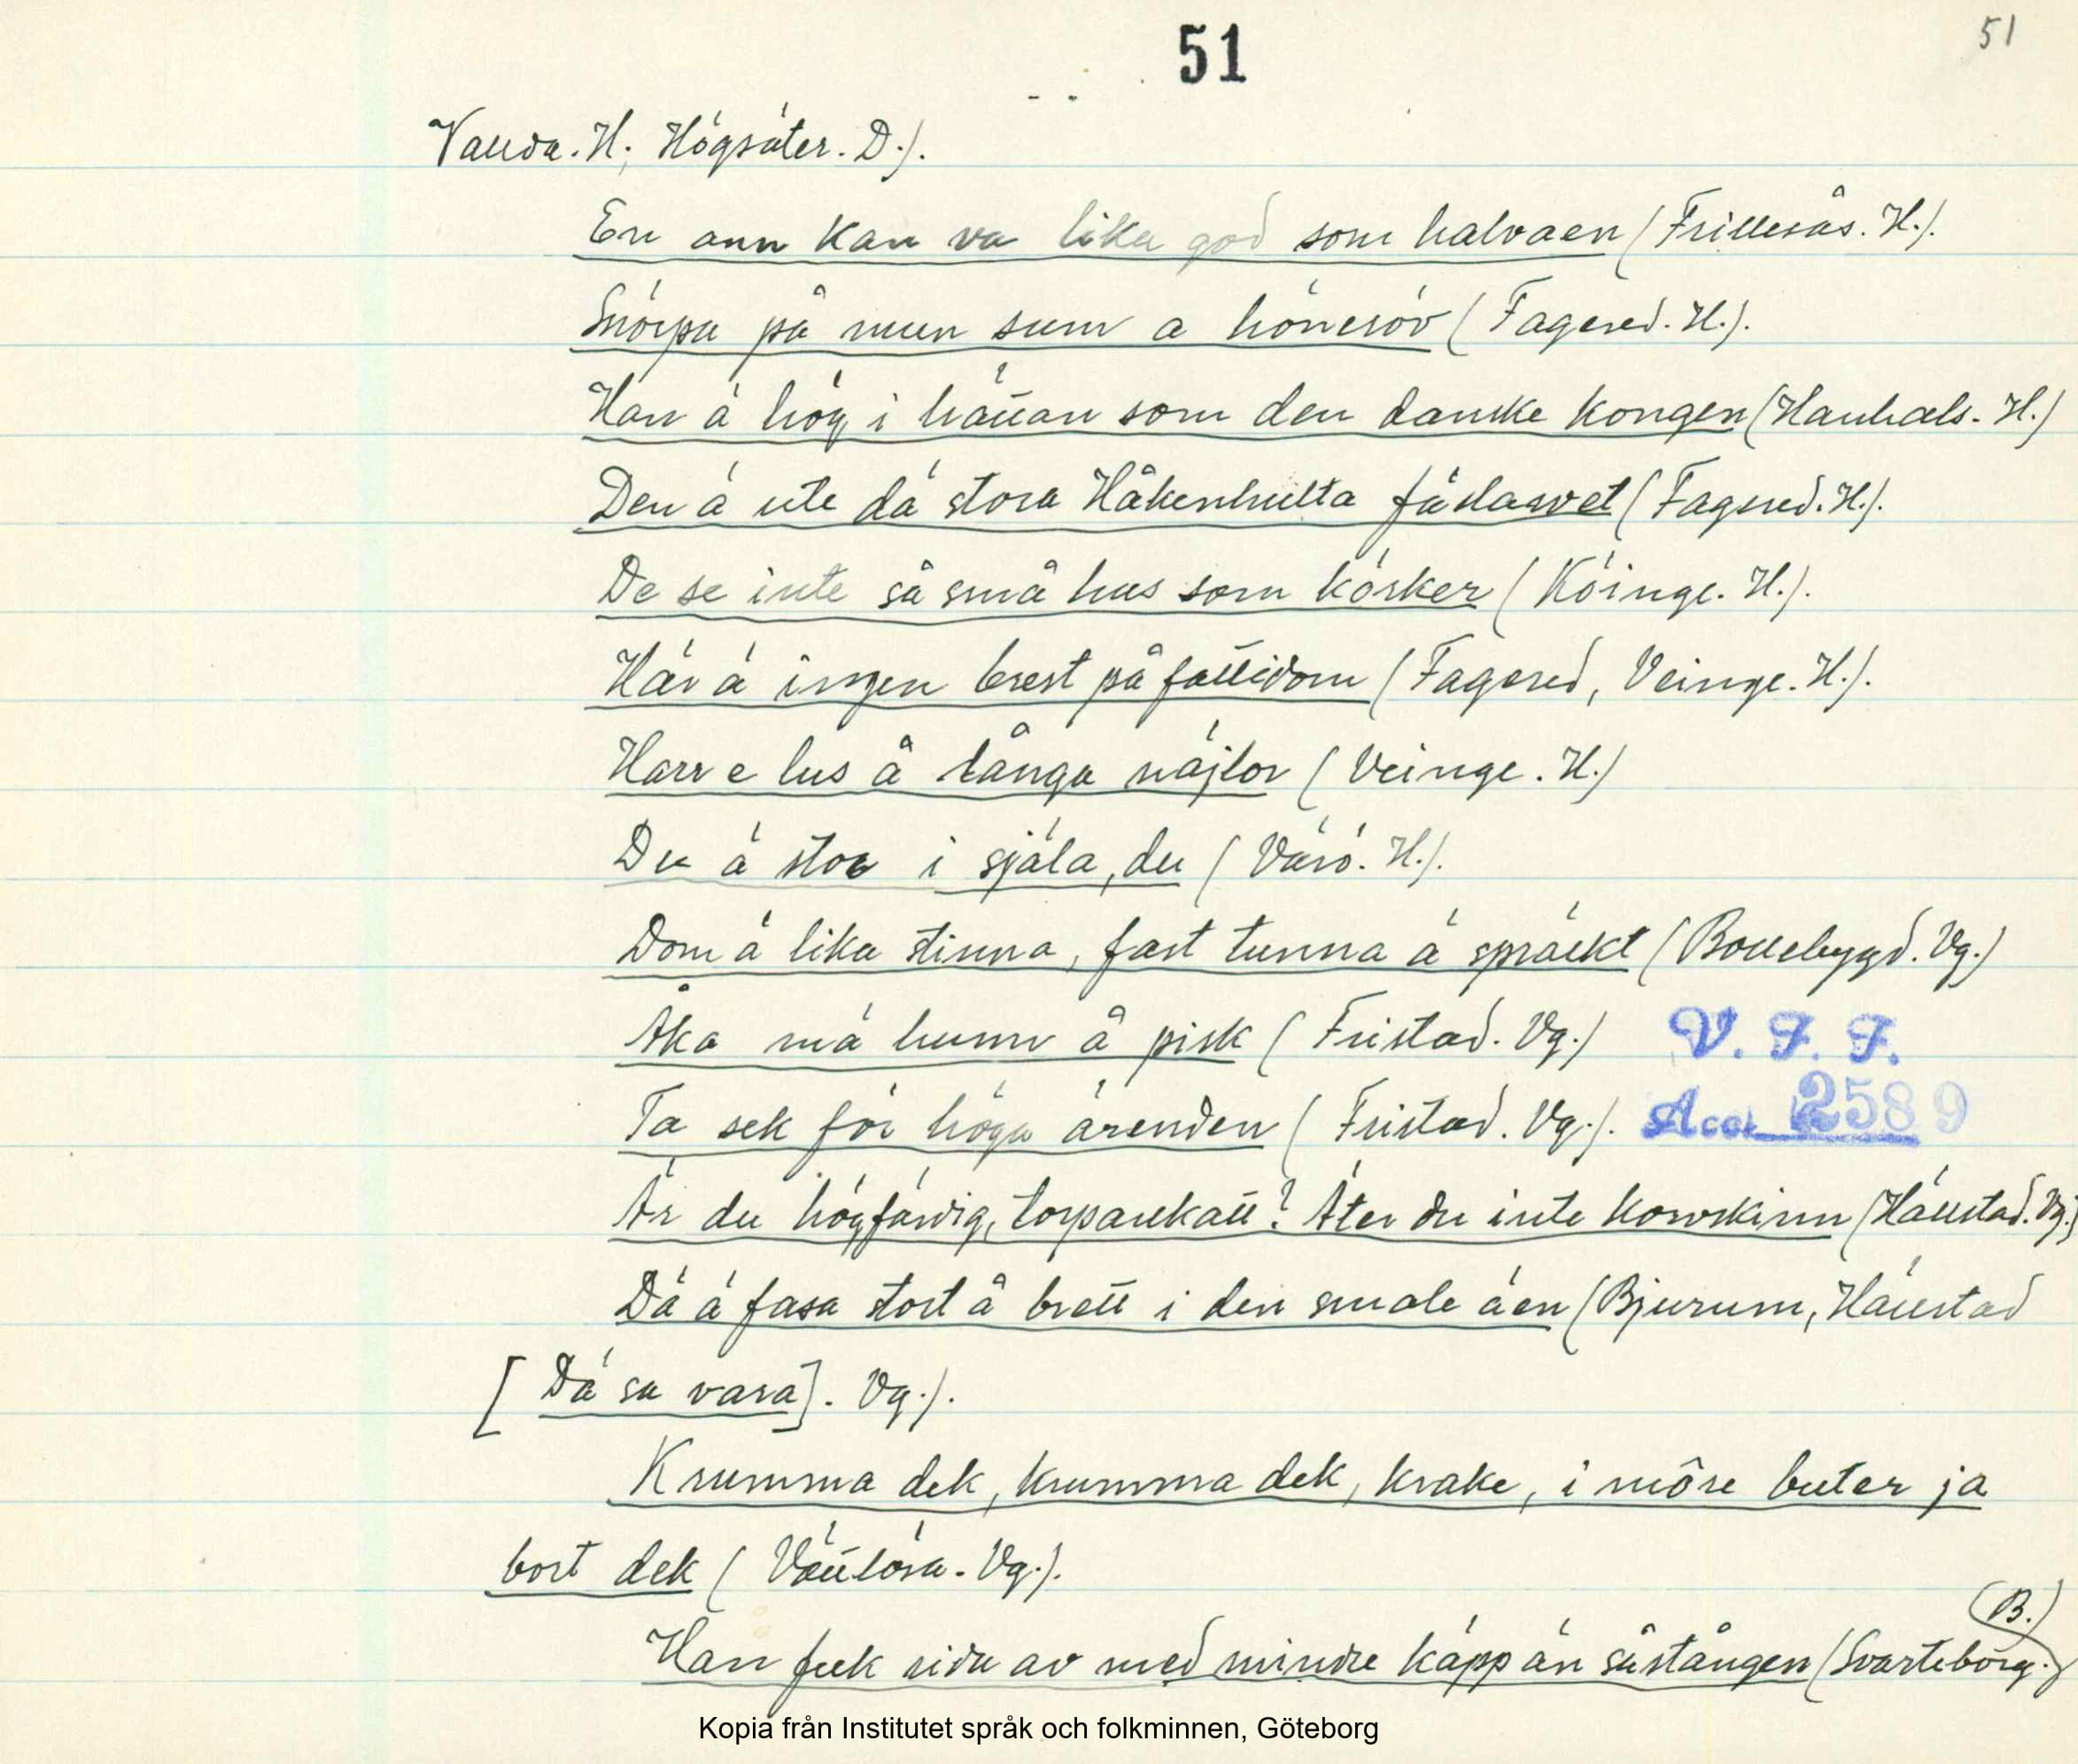 51
51
Valida. H. Högsäter. D.).
En ann kan va lika god som halvaen (Frillesås. H.).
Snörpa på mun sum a höneröv (Fagered. H.).
Han ä hög i hättan som den danske kongen (Hanhals. H.)
Den ä ute dä stora Håkenhulta (Fagered. H.).
De se inte så små hus som kösker (Köinge. H.).
Här ä ingen brest på fattidom (Fagered, Veinge. H.).
Harr e lus å långa näjlor (Veinge. H.)
Du ä stor i själa, du (Värö. H.).
Dom ä lika stinna, fast tunna ä späckt (Bollebygd. Vg.)
Åka mä hunn å pisk (Fristad. Vg.)
V. F. F.
Ta sek för höga ärenden (Fristad. Vg.).
Acc. 2589
Är du högfärdig, torparekatt? Äter du inte kowskinn (Hällstad. Vg.)
Dä ä fasa stort å brett i den smale äen (Bjurum, Hällstad
[Dä sa vara]. Vg.).
Krumma dek, krumma dek, krake, i môre buter ja
bort dek (Vättlösa. Vg.).
(B.)
Han feck rida av med mindre käpp än såstången (Svarteborg.)
Kopia från Institutet språk och folkminnen, Göteborg